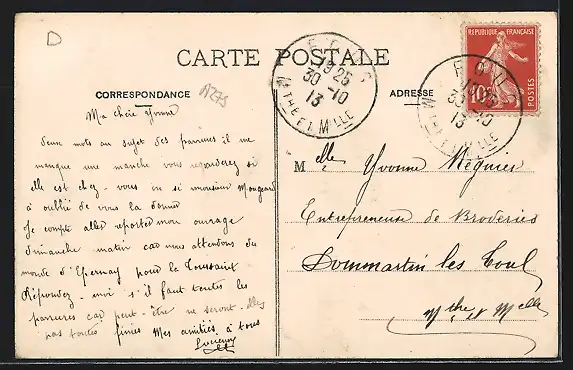 D
CARTE POSTALE
CORRESPONDANCE
ADRESSE
REPUBLIQUE FRANÇAISE
10c
POSTES
19 25
30 - 10
13
MTHE ET MLLE
30 - 10
13
Ma chère Yvonne
deux mots au sujet des parures il me
manque une manche vous regarderez si
elle est chez - vous ou si monsieur Mougeard
à oublié de vous la donner
Je compte aller reporter mon ouvrage
dimanche matin car nous attendons du
monde d'Epernay pour la Toussaint
Répondez - moi s'il faut toutes les
parures car peut - être ne seront - elles
pas toutes finies Mes amitiés à tous
Melle Yvonne Régnier
Entrepreneuse de Broderies
Dommartin les Toul
Mthe et Melle